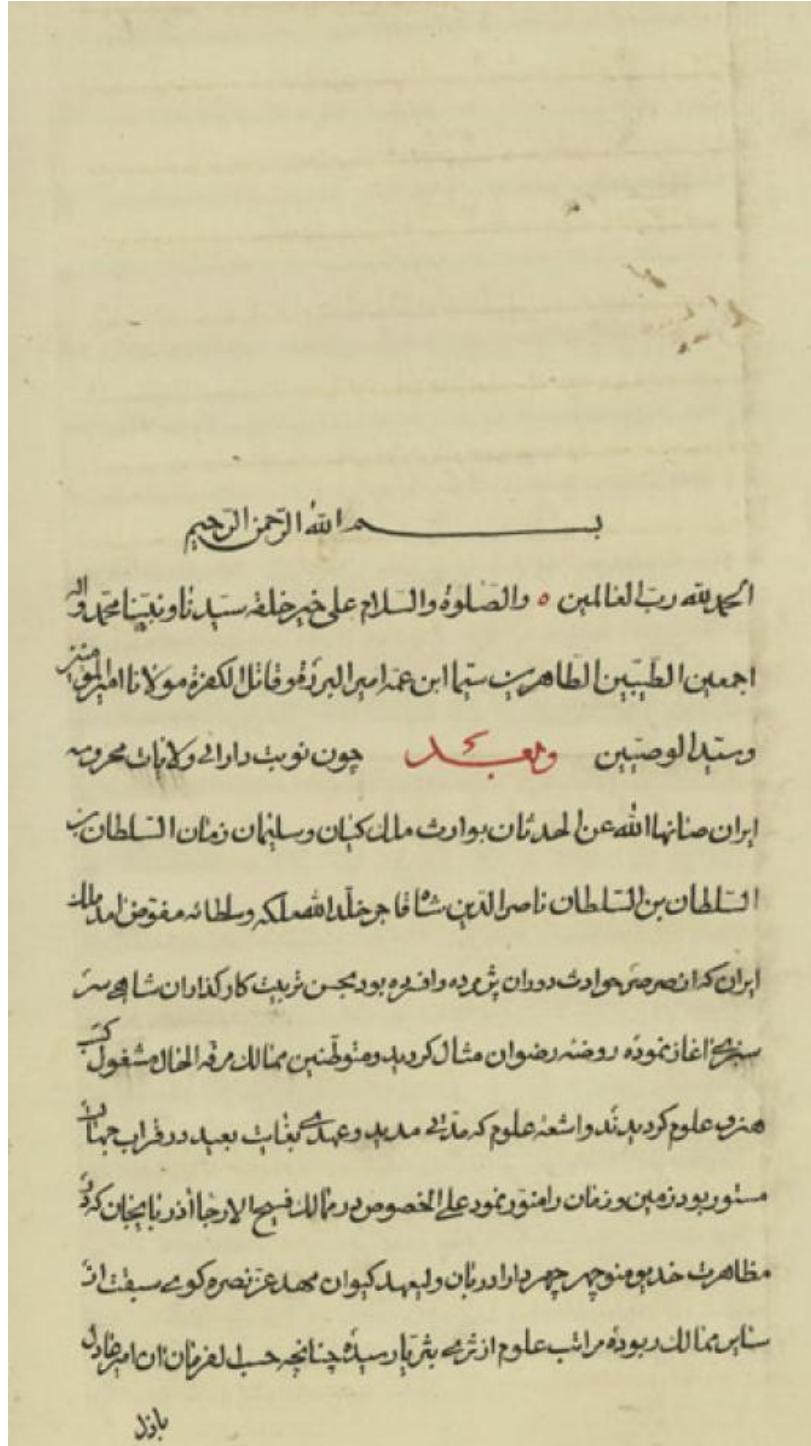 بسم الله الرّحمن الرّحیم
الحمد لله ربّ العالمین ٥ والصّلوة والسّلام علی خیر خلقه سیّدنا ونبیّنا محمّد وآله
اجمعین الطّیّبین الطّاهرین سیّما ابن عمّه امیر البررة وقاتل الکفرة مولانا امیر المؤمنین
وسیّد الوصیّین وبعد چون نوبت دارائی ولایات محروسه
ایران صانها الله عن الحدثان بوارث ملک کیان وسلیمان زمان السّلطان بن
السّلطان بن السّلطان ناصر الدّین شاه قاجار خلّد الله ملکه وسلطانه مفوّض آمد ملک
ایران که از صرصر حوادث دوران پژمرده وافسرده بود بحسن تربیت کارگذاران شاهی سر
سبزی اغاز نموده روضه رضوان مثال کردید ومتوطّنین ممالک مرفّه الحال مشغول کسب
هنر وعلوم کردیدند واشعه علوم که مدّتی مدید وعهدی بغایت بعید در قراب جهان
مستور بود زمین وزمان را منوّر نمود علی الخصوص در ممالک فسیح الارجا آذربایجان که از
مظاهرت خدیو منوچهر چهر دارا دربان ولیعهد کیوان مهد عزّ نصره کوی سبقت از
سایر ممالک ربوده مراتب علوم از ثری بثریّا رسیده چنانچه حسب الفرمان ان امیر عادل
باذل